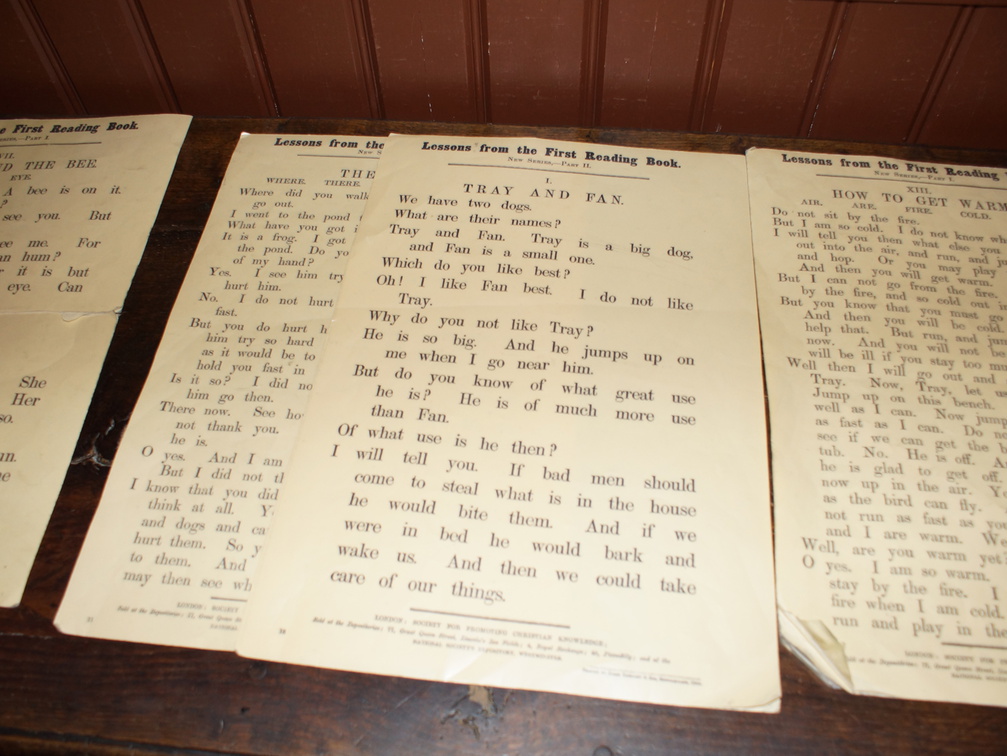 e First Reading Book.
SERIES,—PART I.
VII.
D THE BEE.
EYE.
A bee is on it.
?
see you. But
ee me. For
an hum?
r it is but
eye. Can
She
Her
so.
un.
ne
Lessons from the
NEW S
THE
WHERE. THERE.
Where did you walk
go out.
I went to the pond t
What have you got i
It is a frog. I got
the pond. Do yo
of my hand?
Yes. I see him try
hurt him.
No. I do not hurt
fast.
But you do hurt h
him try so hard
as it would be to
hold you fast in
Is it so? I did no
him go then.
There now. See ho
not thank you.
he is.
O yes. And I am
But I did not th
I know that you did
think at all. Y
and dogs and ca
hurt them. So y
to them. And
may then see wh
LONDON: SOCIET
Lessons from the First Reading Book.
NEW SERIES,—PART II.
I.
TRAY AND FAN.
We have two dogs.
What are their names?
Tray and Fan. Tray is a big dog,
and Fan is a small one.
Which do you like best?
Oh! I like Fan best. I do not like
Tray.
Why do you not like Tray?
He is so big. And he jumps up on
me when I go near him.
But do you know of what great use
he is? He is of much more use
than Fan.
Of what use is he then?
I will tell you. If bad men should
come to steal what is in the house
he would bite them. And if we
were in bed he would bark and
wake us. And then we could take
care of our things.
LONDON: SOCIETY FOR PROMOTING CHRISTIAN KNOWLEDGE;
Sold at the Depositories: 77, Great Queen Street, Lincoln's Inn Fields; 4, Royal Exchange; 48, Piccadilly; and at the
NATIONAL SOCIETY'S DEPOSITORY, WESTMINSTER.
Lessons from the First Reading
NEW SERIES,—PART I.
XIII.
HOW TO GET WARM
AIR. ARE. FIRE. COLD.
Do not sit by the fire.
But I am so cold. I do not know wh
I will tell you then what else you
out into the air, and run, and ju
and hop. Or you may play
And then you will get warm.
But I can not go from the fire.
by the fire, and so cold out i
But you know that you must go
And then you will be cold.
help that. But run, and jum
now. And you will not be
will be ill if you stay too mu
Well then I will go out and
Tray. Now, Tray, let
Jump up on this bench.
well as I can. Now jump
as fast as I can. Do no
see if we can get the b
tub. No. He is off. A
he is glad to get off.
now up in the air. Y
as the bird can fly.
not run as fast as yo
and I are warm. We
Well, are you warm yet?
O yes. I am so warm.
stay by the fire. I
fire when I am cold.
run and play in the